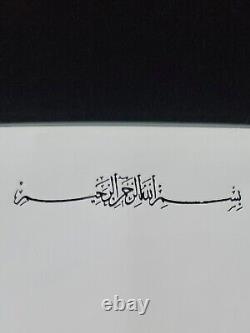 بِسْمِ اللهِ الرَّحْمٰنِ الرَّحِيْمِ
ebay